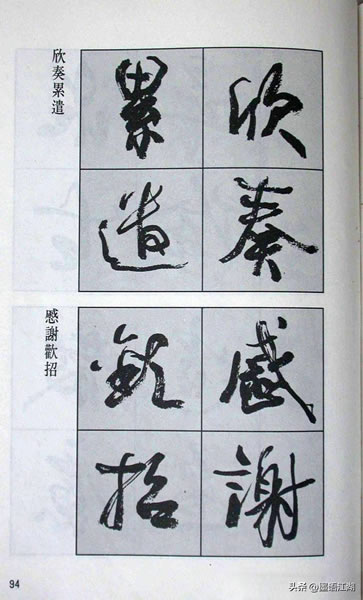 欣奏
累遣
欣奏累遣
慼謝
歡招
慼謝歡招
94
头条 @墨语江湖